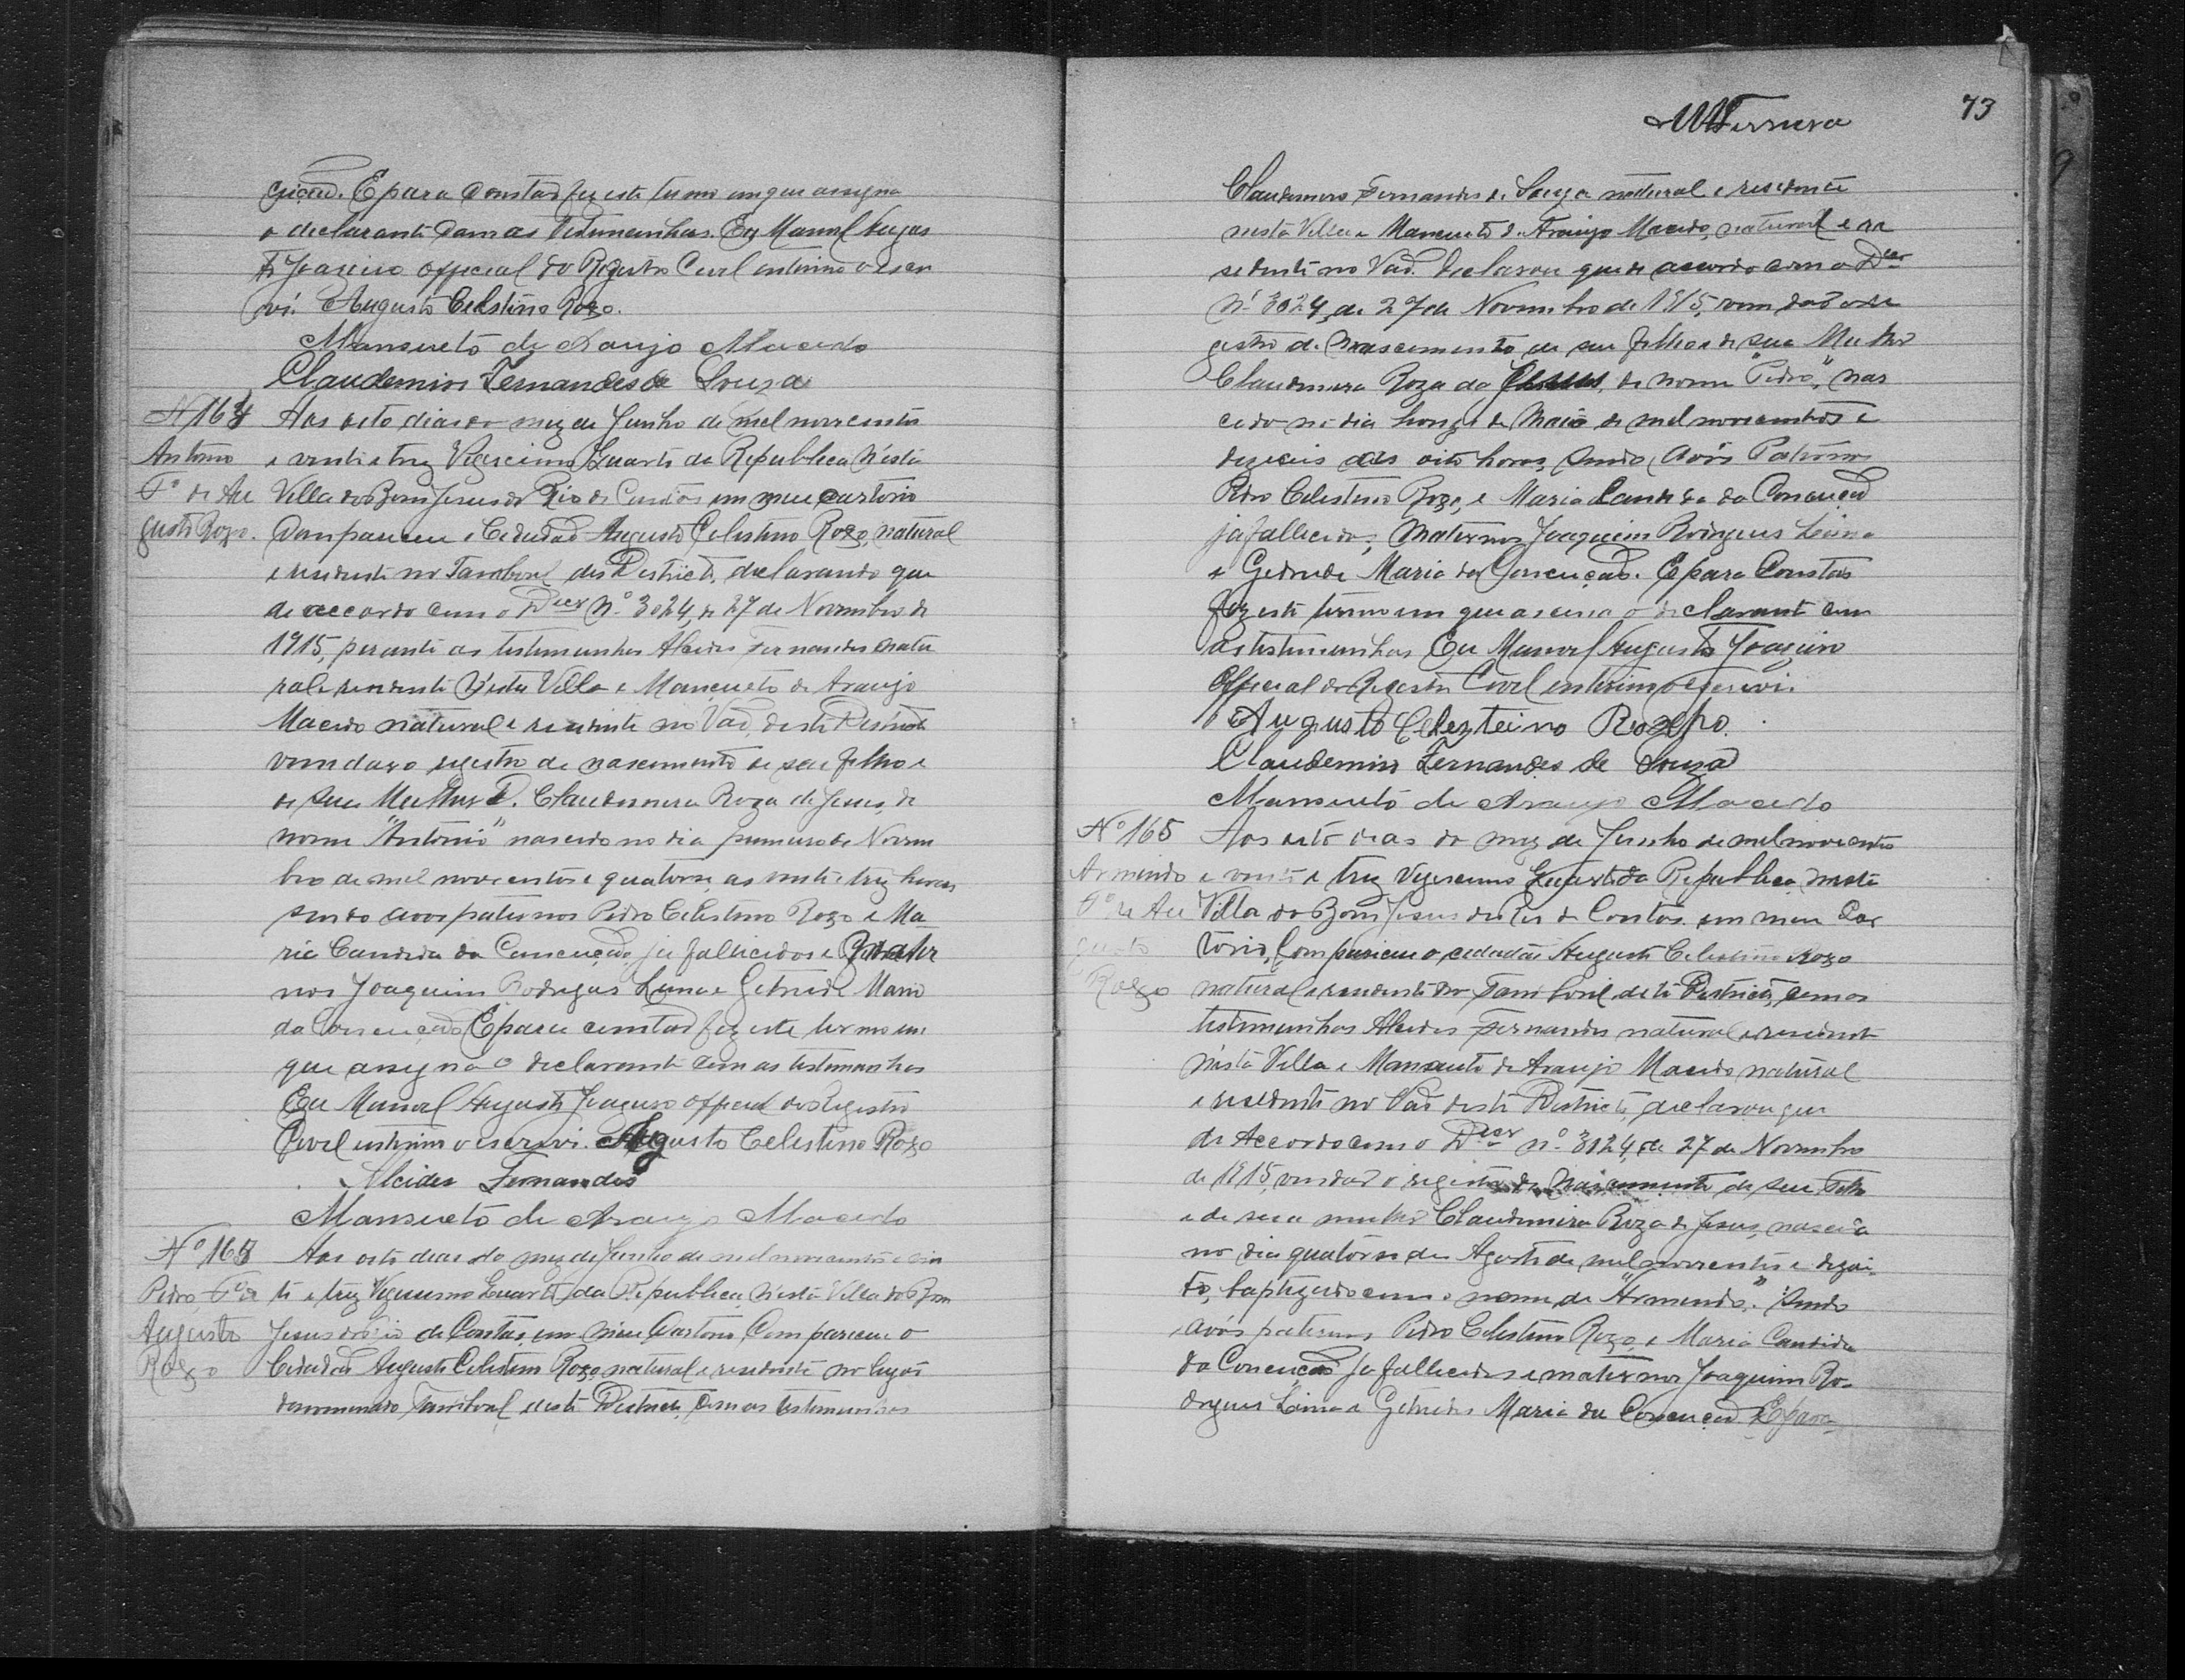 ceição. E para constar fiz este termo em que assigna
o declarante com as testimunhas. Eu Manoel Augus
to Joazeiro official do Registro Civil interino o escre
vi. Augusto Celestino Rozo.
Mansueto de Araujo Macedo
Claudemiro Fernandes de Souza
Nº 163
Antonio
Fº de Au
gusto Rozo.
Aos oito dias do mez de Junho de mil novecentos
e vinti e trez Vigecimo Quarto da Republica n'esta
Villa do Bom Jesus do Rio de Contas em meu cartorio
Compareceu o Cedadão Augusto Celestino Rozo, natural
e residente no Tamboril des Destricto, declarando que
de accordo com o Decr Nº 3024, de 27 de Novembro de
1915, perante as testimunhas Alcides Fernandes natu
ral e residente n'esta Villa e Mancueto de Araujo
Macedo natural e residente no Vão, deste Destricto
vem dar o registro de nascemento de seu filho e
de sua Mulher D. Claudemira Roza de Jesus, de
nome "Antonio" nascido no dia primeiro de Novem
bro de mil novecentos e quatorse, as vinti e trez horas
sendo avos paternos Pedro Celestino Rozo e Ma-
ria Candida da Conceição, ja fallicidos e mater
nos Joaquim Rodrigues Lima e Getrude Maria
da Conceição. E para constar fiz este termo em
que assigna o declarante com as testimunhas
Eu Manoel Augusto Joazeiro official do Registro
Civil interino o escrivi. Augusto Celestino Rozo
Alcides Fernandes
Mansueto de Araujo Macedo
Nº 164
Pedro Fº de
Augusto
Rozo
Aos oito dias do mez de Junho de mil novecentos e vin
ti e trez Vigecimo Quarto da Republica, n'esta Villa do Bom
Jesus do Rio de Contas, em meu Cartorio, Compareceu o
Cedadão Augusto Celestino Rozo natural e residente no lugar
denominado Tamboril deste Destricto, com as testimunhas
73
Claudemiro Fernandes de Souza natural e residente
nesta Villa e Mancueto de Araujo Macedo, natural e re
sidente no Vão. Declarou que de accordo com o Decr
Nº 3024, de 27 de Novembro de 1915, vem dar o re
gistro de nascemento de seu filho e de sua Mulher
Claudemira Roza de Jesus, de nome "Pedro", nas
cedo no dia honze de Maio de mil novecentos e
dezeseis as oito horas, sendo, Avós Paternos
Pedro Celestino Rozo, e Maria Candida da Conceição
ja fallecidos, Maternos Joaquim Rodrigues Lima
e Getrude Maria da Conceição. E para Constar
fiz este termo em que assina o declarante com
as testimunhas Eu Manoel Augusto Joazeiro
Official do Registro Civel interino o escrevi.
Augusto Celezteino Rozo
Claudemiro Fernandes de Souza
Mansueto de Araujo Macedo
Nº 165
Armindo
Fº de Au
gusto
Rozo
Aos oito dias do mez de Junho de mil novecentos
e vinti e trez Vigecimo Quarto da Republica, nesta
Villa do Bom Jesus do Rio de Contas em meu Car
torio, Compareceu o cedadão Augusto Celestino Rozo
natural e residente do Tamboril deste Destricto, com as
testimunhas Alcides Fernandes natural e residente
n'esta Villa e Mansueto de Araujo Macedo natural
e residente no Vão deste Destricto, declarou que
de Accordo com o Decr nº 3124, de 27 de Novembro
de 1915, vem dar o registro de Nascemento de seu Filho
e de sua mulher Claudemira Roza de Jesus, nascido
no dia quatorse de Agosto de mil novecentos e dezoi-
to, baptizado com o nome de "Armindo". Sendo
avós paternos Pedro Celestino Rozo, e Maria Candida
da Conceição ja fallecidos e maternos Joaquim Ro-
drigues Lima e Getrudes Maria da Conceição. E para